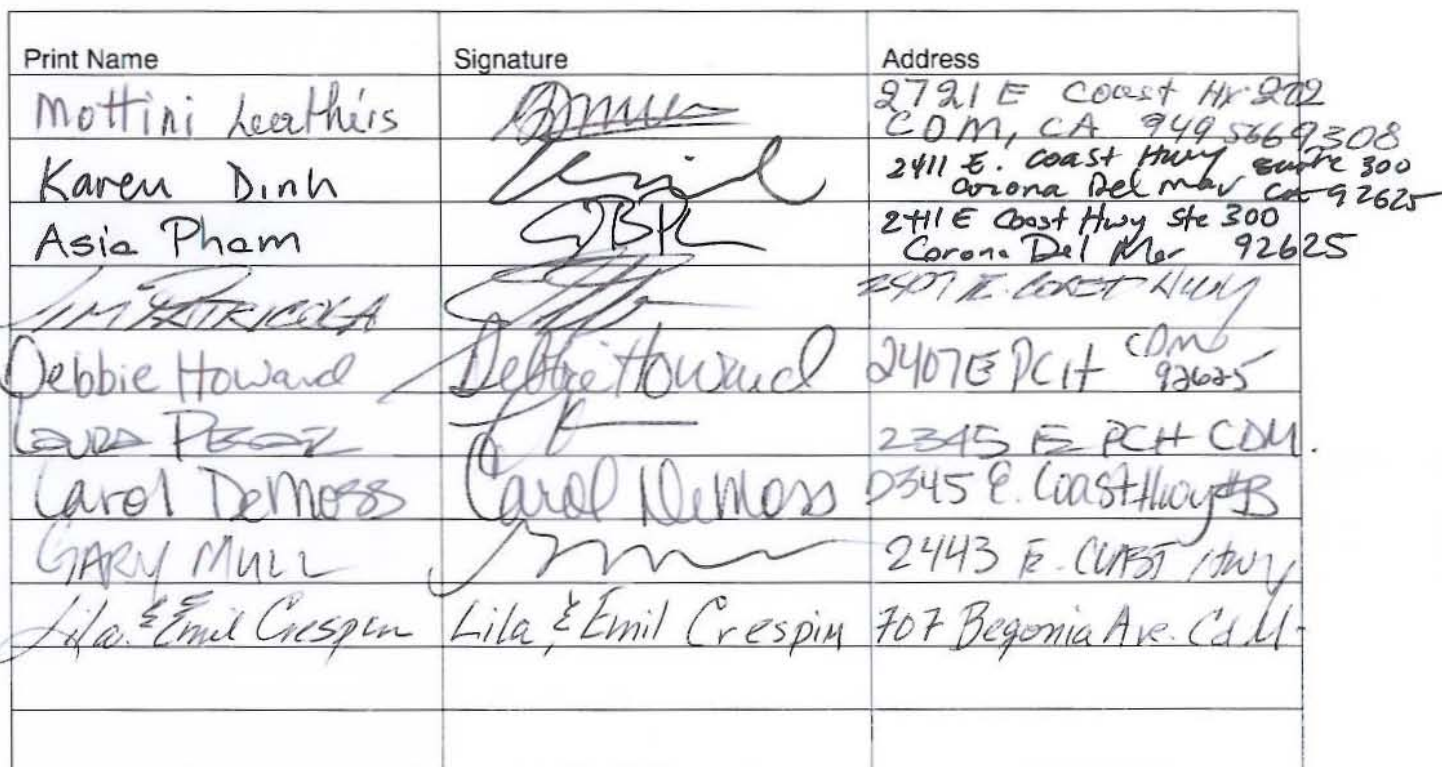 Print Name Signature Address
Mottini Leathers 2721 E Coast Hr 202
CDM, CA 949 566 9308
Karen Dinh 2411 E. Coast Hwy suite 300
Corona Del Mar CA 92625
Asia Pham 2411 E Coast Hwy Ste 300
Corona Del Mar 92625
Jim Patricola 2407 E. Coast Hwy
Debbie Howard Debbie Howard 2407 E PCH CDM
92625
Laura 2345 E PCH CDM.
Carol DeMoss Carol DeMoss 2345 E. Coast Hwy #B
GARY MULL 2443 E. COAST Hwy
Lila & Emil Crespin Lila & Emil Crespin 707 Begonia Ave. CdM.